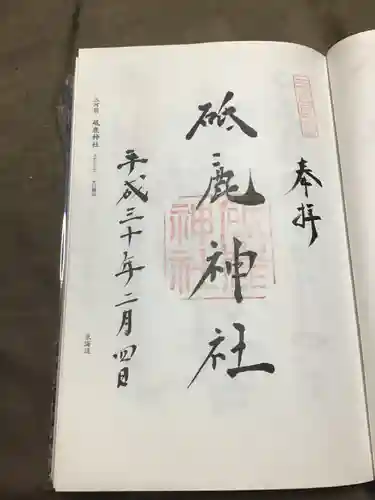 奉拝
砥鹿神社
平成三十年二月四日
三河国 砥鹿神社
東海道